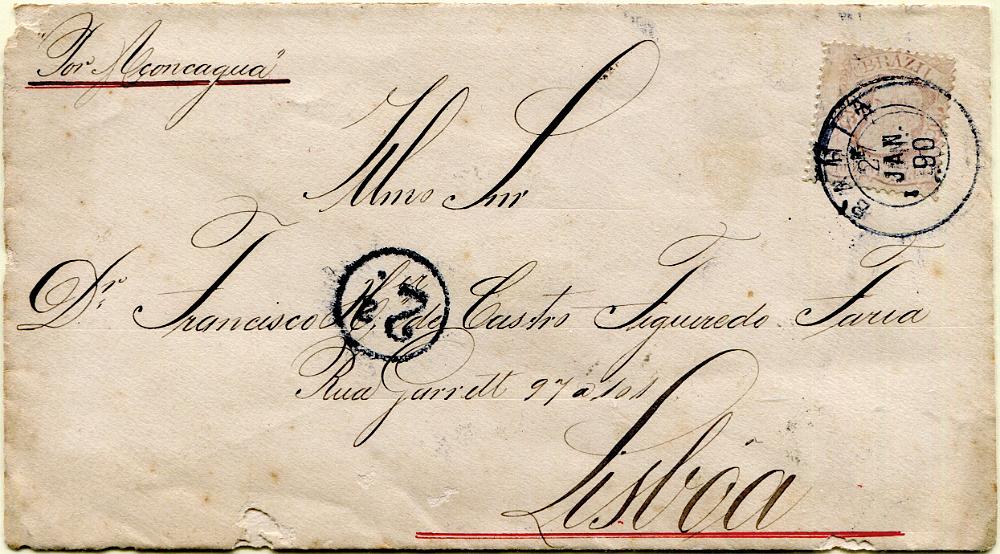 "Por Aconcagua"
BRAZIL
BAHIA
27
JAN.
90
Illmo Snr
Dr. Francisco de Castro Figueredo Faria
Rua Garrett 97 a 101
Lisbôa